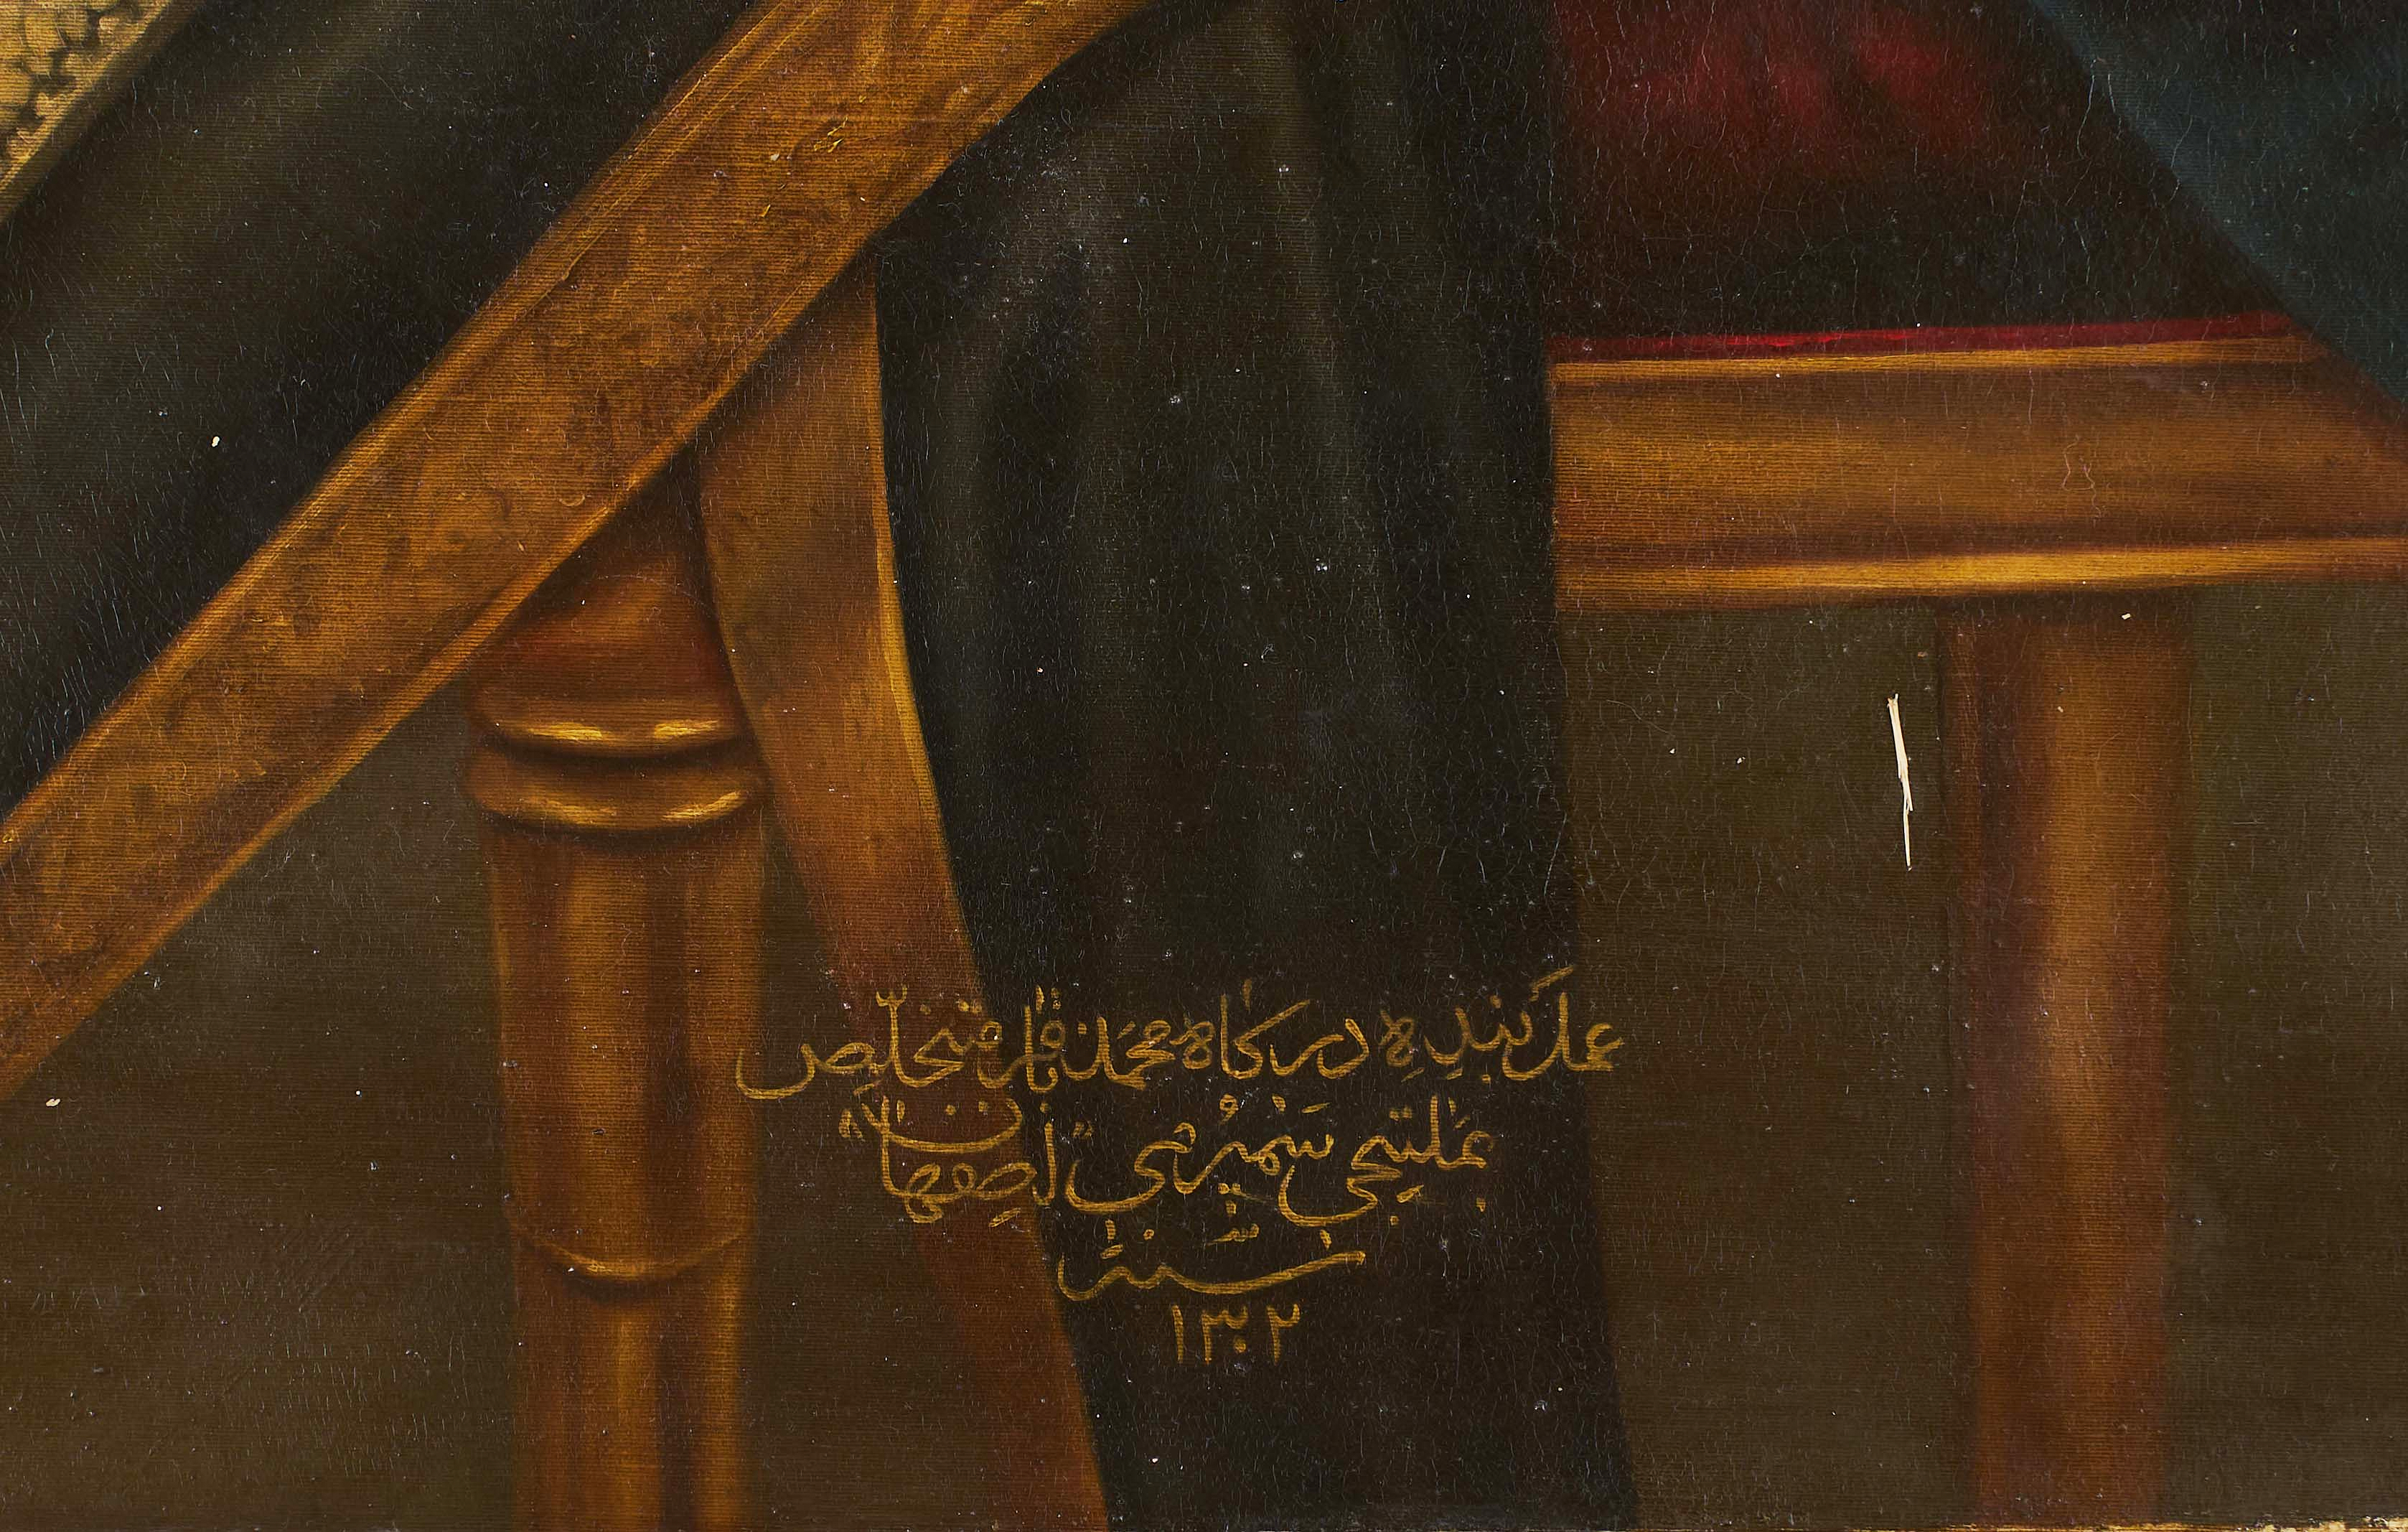 عمل بنده درگاه محمد باقر متخلص
بملتجی سمیرمی اصفهانی
سنه
۱۳۰۲